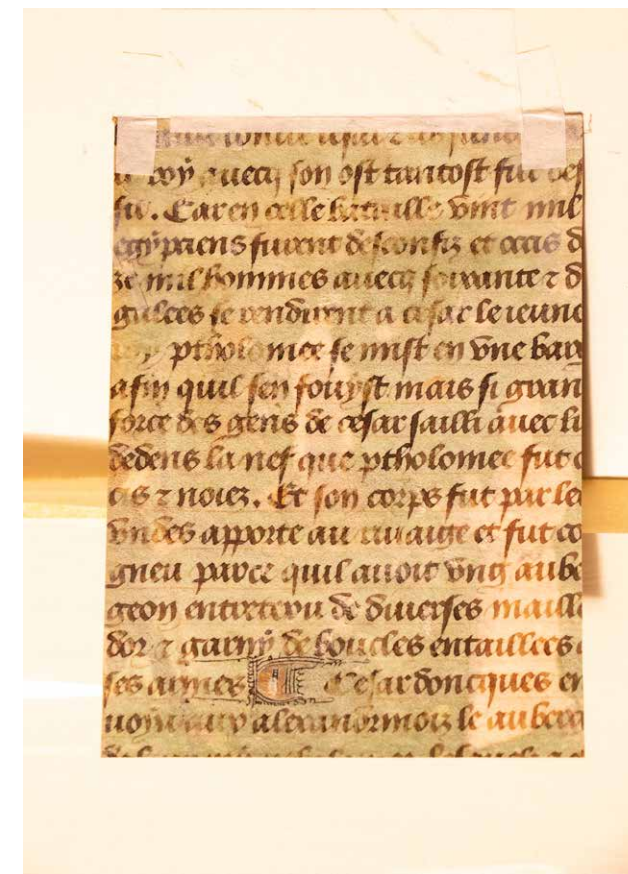 roy avecq son ost tantost fut des
fit. Car en celle bataille vint mil
egypciens furent desconfiz et occis d
ze mil hommes avecq soixante ⁊ d
gallees se rendirent a cesar le ieune
roy ptholomee se mist en vne barg
afin quil sen fouyst mais si gran
force des gens de cesar sailli auec lu
dedens la nef que ptholomee fut o
cis ⁊ noiez. Et son corps fut par les
vndes apporte au riuaige et fut co
gneu parce quil auoit vng aube
geon entretenu de diuerses maille
dor ⁊ garny de boucles entaillees
ses armes Cesar doncques en
uoya aux alexandrinoiz le auberg